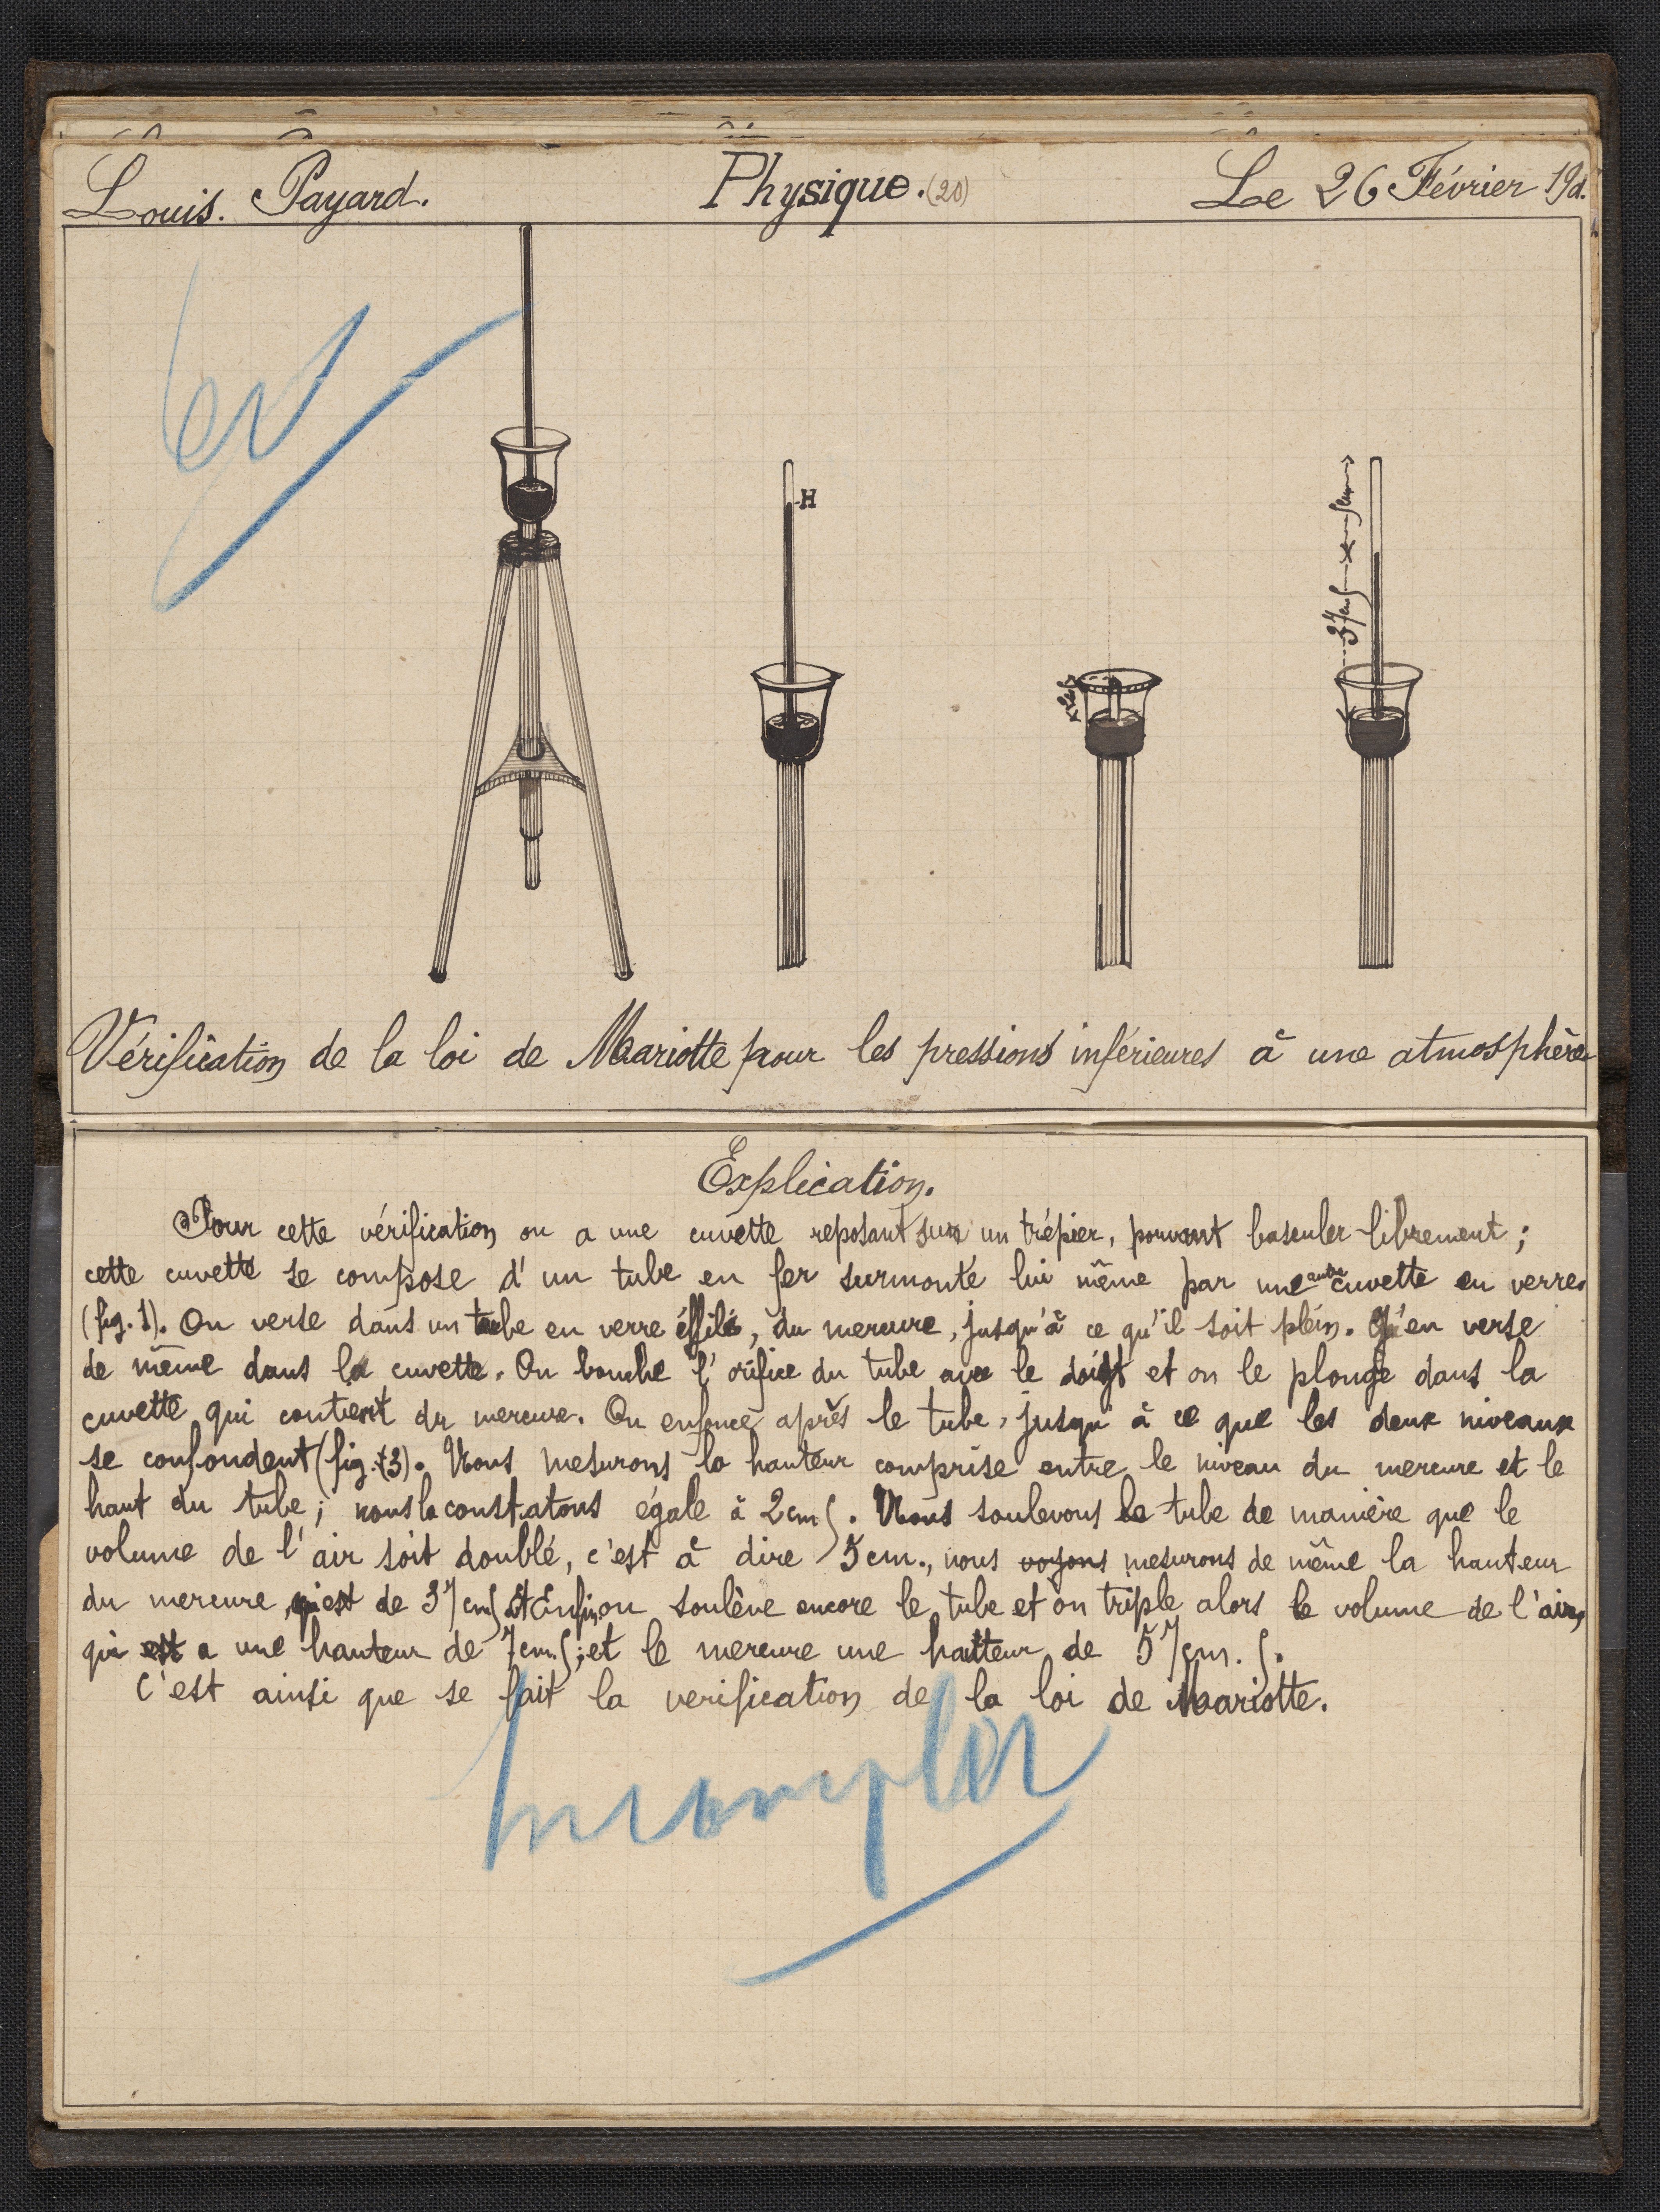 Louis. Payard.
Physique. (20)
Le 26 Février 19
H
Vérification de la loi de Mariotte pour les pressions inférieures à une atmosphère
Explication.
Pour cette vérification on a une cuvette reposant sur un trépier, pouvant basculer librement ;
cette cuvette se compose d'un tube en fer surmonté lui même par une autre cuvette en verre.
(fig. 1). On verse dans un tube en verre éffilé, du mercure, jusqu'à ce qu'il soit plein. en verse
de même dans la cuvette. On bouche l'orifice du tube avec le doigt et on le plonge dans la
cuvette qui contient du mercure. On enfonce après le tube, jusqu'à ce que les deux niveaux
se confondent (fig. 3). Nous mesurons la hauteur comprise entre le niveau du mercure et le
haut du tube ; nous la constatons égale à 2cm5. Nous soulevons le tube de manière que le
volume de l'air soit doublé, c'est à dire 5cm., nous voyons mesurons de même la hauteur
du mercure, qui est de 37cm5 Enfin, on soulève encore le tube et on triple alors le volume de l'air,
qui est a une hauteur de 7cm.5 ; et le mercure une hauteur de 57cm.5.
C'est ainsi que se fait la verification de la loi de Mariotte.